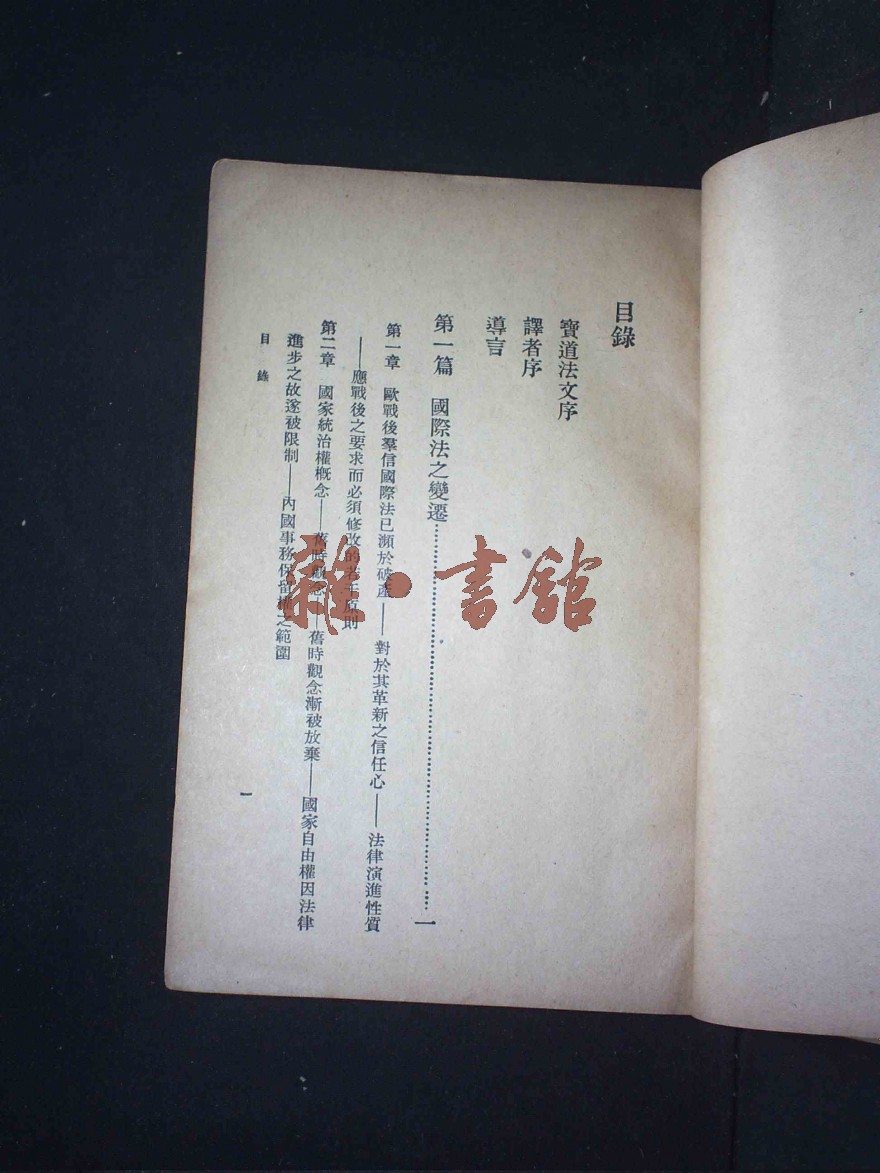 目錄
寶道法文序
譯者序
導言
第一篇 國際法之變遷⋯⋯⋯⋯⋯⋯⋯⋯⋯⋯⋯⋯⋯⋯一
第一章 歐戰後羣信國際法已瀕於破產——對於其革新之信任心——法律演進性質
——應戰後之要求而必須修改的若干原則
第二章 國家統治權概念——舊時觀念——舊時觀念漸被放棄——國家自由權因法律
進步之故遂被限制——內國事務保留權之範圍
目錄
一
雜·書館